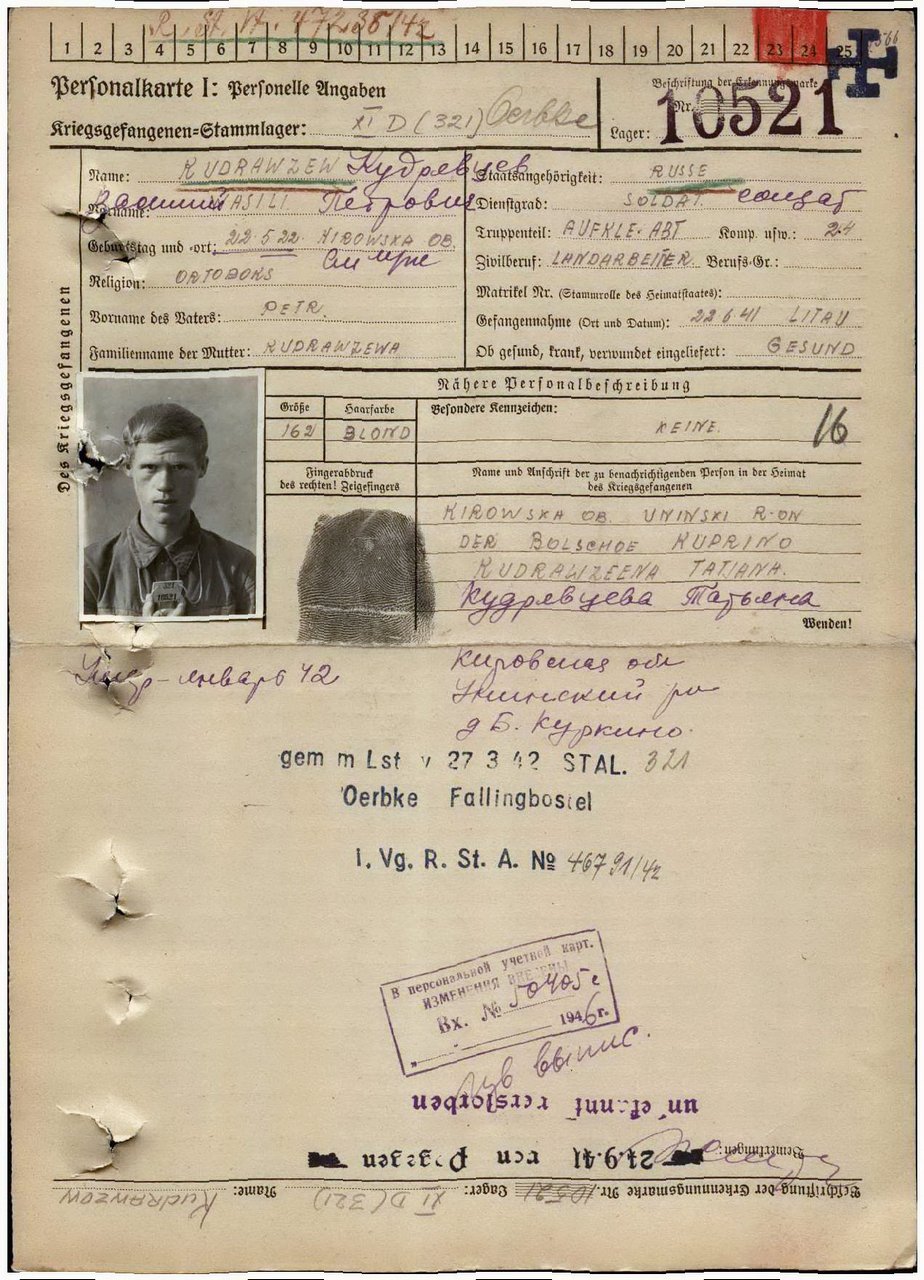 R. St. Vt. 47235/42
1 2 3 4 5 6 7 8 9 10 11 12 13 14 15 16 17 18 19 20 21 22 23 24 25
Personalkarte I: Personelle Angaben
Kriegsgefangenen=Stammlager: XI D (321) Oerbke
Beschriftung der Erkennungsmarke
Nr. 10521
Lager:
Des Kriegsgefangenen
Name: KUDRAWZEW Кудревцев
Vorname: WASILI Василий Петрович
Geburtstag und -ort: 22.5.22. KIROWSKA OB.
Religion: ORTODOKS
Vorname des Vaters: PETR.
Familienname der Mutter: KUDRAWZEWA
Staatsangehörigkeit: RUSSE
Dienstgrad: SOLDAT. солдат
Truppenteil: AUFKLE-ABT Komp. usw.: 24
Zivilberuf: LANDARBEITER. Berufs-Gr.:
Matrikel Nr. (Stammrolle des Heimatstaates):
Gefangennahme (Ort und Datum): 22.6.41 LITAU
Ob gesund, krank, verwundet eingeliefert: GESUND
Nähere Personalbeschreibung
Größe Haarfarbe Besondere Kennzeichen:
162 BLOND KEINE. 16
Fingerabdruck
des rechten! Zeigefingers
Name und Anschrift der zu benachrichtigenden Person in der Heimat
des Kriegsgefangenen
321
10521
KIROWSKA OB. UNINSKI R-ON
DER BOLSCHOE KUPRINO
KUDRAWZEENA TATJANA.
Кудревцева Татьяна
Wenden!
январь 42
Кировская обл
Унинский рн
д Б. Куркино.
gem m Lst v 27 3 42 STAL. 321
Oerbke Fallingbostel
i. Vg. R. St. A. № 46791/42
В персональной учетной карт.
ИЗМЕНЕНИЯ ВНЕСЕНЫ
Вх. № 50405с
1946г.
выпис.
unbekannt verstorben
Bemerkungen:
24.9.41 von Pogegen
Beschriftung der Erkennungsmarke Nr. 10521 Lager: XI D (321) Name: KUDRAWZOW